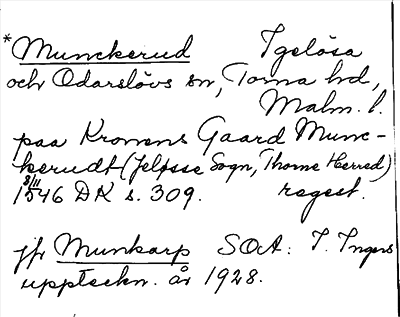 *Munckerud Igelösa
och Odarslövs sn, Torna hd,
Malm. l.
paa Kronens Gaard Munc-
kerudt (Jeløsse Sogn, Thorne Herred)
8/11 1546 DK s. 309. regest.
jfr Munkarp SOA: I. Ingers
uppteckn. år 1928.